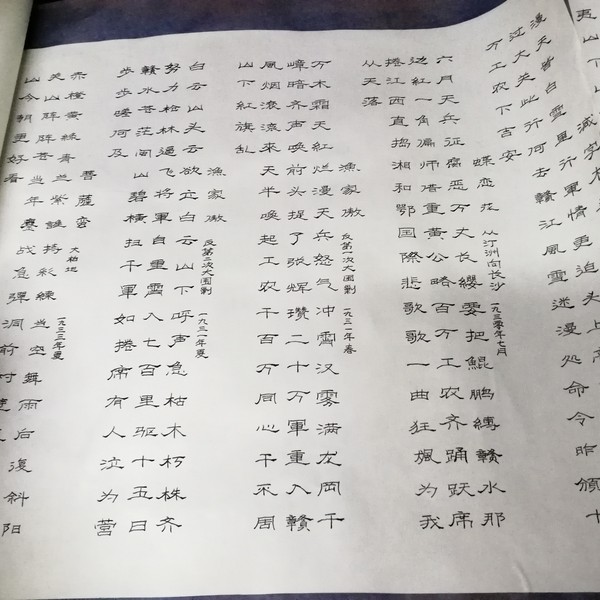 漫天皆白雪里行軍情更迫头上
过大关此行何去贛江風雪迷漫处命令昨頒十
万工农下吉安
蝶恋花 从汀洲向长沙 一九三零年七月
六月天兵征腐恶万丈长纓要把鯤鹏縛贛水那
边紅一角偏师借重黄公略百万工农齐踊跃席
捲江西直捣湘和鄂国際悲歌歌一曲狂飆为我
从天落
漁家傲 反第一次大围剿 一九三一年春
万木霜天紅烂漫天兵怒气冲霄汉雾满龙岡千
嶂暗齐声唤前头捉了张辉瓒二十万軍重入贛
風烟滚滚来天半唤起工农千百万同心干不周
山下紅旗乱
漁家傲 反第二次大围剿 一九三一年夏
白云山头云欲立白云山下呼声急枯木朽株齐
努力枪林逼飞将軍自重霄入七百里驱十五日
贛水苍茫闽山碧横扫千軍如捲席有人泣为营
步步嗟何及
菩薩蛮 大柏地 一九三三年夏
赤橙黄綠青兰紫誰持彩練当空舞雨后復斜阳
关山阵阵苍当年鏖战急彈洞前村
山今朝更好看